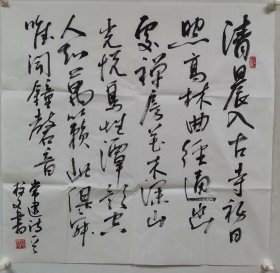 清晨入古寺初日
照高林曲径通幽
处禅房花木深山
光悦鸟性潭影空
人心萬籁此俱寂
唯闻鐘磬音
常建诗
文书